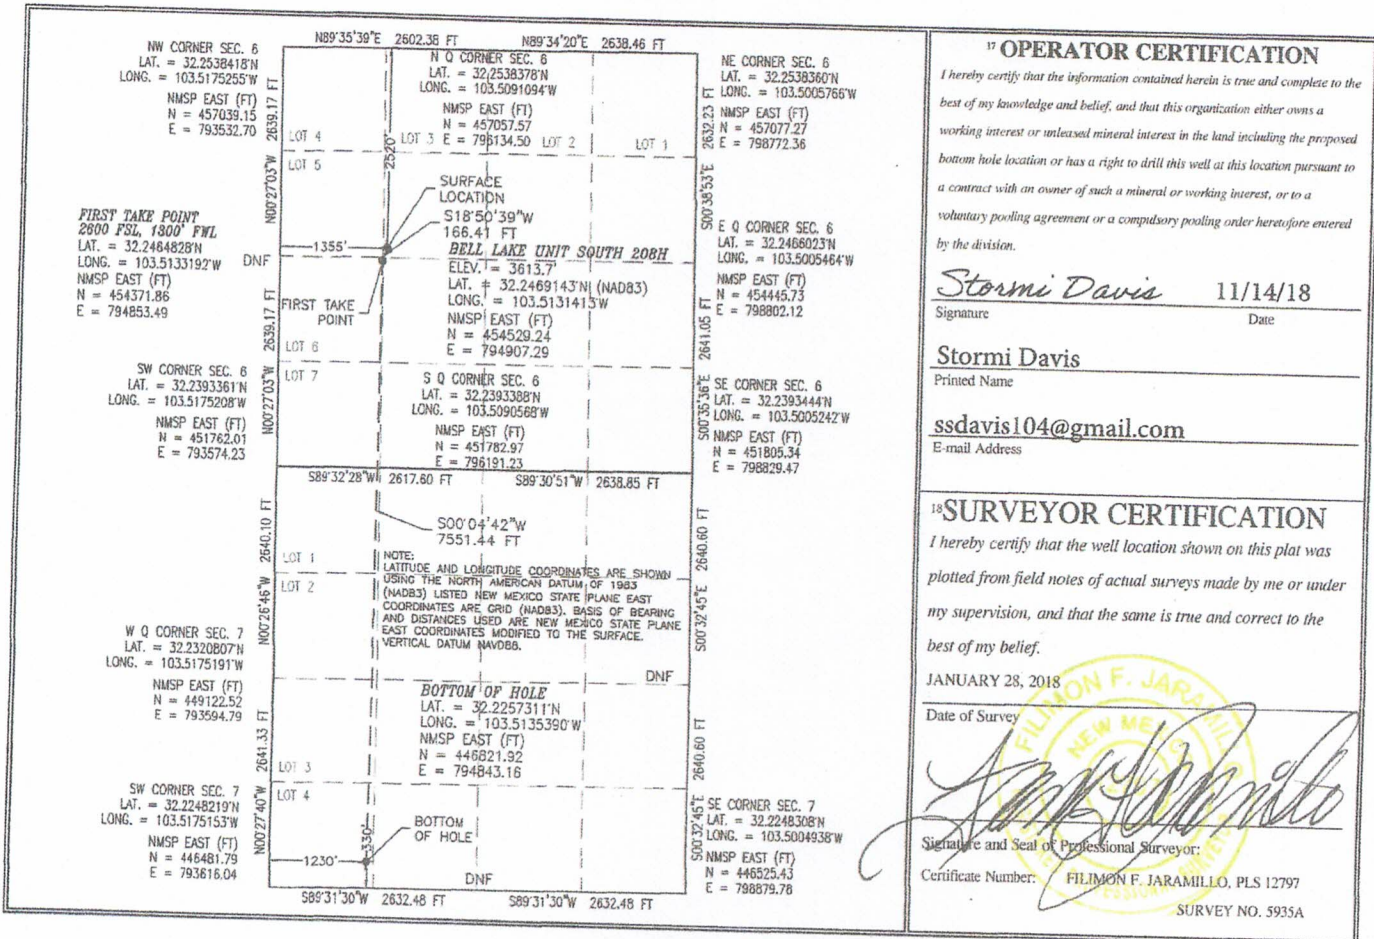 N89°35'39"E 2602.38 FT
N89°34'20"E 2638.46 FT
NW CORNER SEC. 6
LAT. = 32.2538418'N
LONG. = 103.5175255'W
NMSP EAST (FT)
N = 457039.15
E = 793532.70
2639.17 FT
N Q CORNER SEC. 6
LAT. = 32.2538378'N
LONG. = 103.5091094'W
NMSP EAST (FT)
N = 457057.57
E = 796134.50
NE CORNER SEC. 6
LAT. = 32.2538360'N
LONG. = 103.5005766'W
NMSP EAST (FT)
N = 457077.27
E = 798772.36
2632.23 FT
LOT 4
LOT 3
LOT 2
LOT 1
LOT 5
2520'
N00°27'03"W
S00°38'53"E
SURFACE
LOCATION
S18°50'39"W
166.41 FT
FIRST TAKE POINT
2600 FSL, 1300' FWL
LAT. = 32.2464828'N
LONG. = 103.5133192'W
NMSP EAST (FT)
N = 454371.86
E = 794853.49
DNF
1355'
BELL LAKE UNIT SOUTH 208H
ELEV. = 3613.7'
LAT. = 32.2469143'N (NAD83)
LONG. = 103.5131413'W
NMSP EAST (FT)
N = 454529.24
E = 794907.29
E Q CORNER SEC. 6
LAT. = 32.2466023'N
LONG. = 103.5005464'W
NMSP EAST (FT)
N = 454445.73
E = 798802.12
FIRST TAKE
POINT
2639.17 FT
2641.05 FT
LOT 6
LOT 7
SW CORNER SEC. 6
LAT. = 32.2393361'N
LONG. = 103.5175208'W
NMSP EAST (FT)
N = 451762.01
E = 793574.23
N00°27'03"W
S Q CORNER SEC. 6
LAT. = 32.2393388'N
LONG. = 103.5090568'W
NMSP EAST (FT)
N = 451782.97
E = 796191.23
S00°35'36"E
SE CORNER SEC. 6
LAT. = 32.2393444'N
LONG. = 103.5005242'W
NMSP EAST (FT)
N = 451805.34
E = 798829.47
S89°32'28"W 2617.60 FT
S89°30'51"W 2638.85 FT
S00°04'42"W
7551.44 FT
2640.10 FT
2640.60 FT
LOT 1
LOT 2
NOTE:
LATITUDE AND LONGITUDE COORDINATES ARE SHOWN
USING THE NORTH AMERICAN DATUM OF 1983
(NAD83) LISTED NEW MEXICO STATE PLANE EAST
COORDINATES ARE GRID (NAD83). BASIS OF BEARING
AND DISTANCES USED ARE NEW MEXICO STATE PLANE
EAST COORDINATES MODIFIED TO THE SURFACE.
VERTICAL DATUM NAVD88.
N00°26'46"W
S00°32'45"E
W Q CORNER SEC. 7
LAT. = 32.2320807'N
LONG. = 103.5175191'W
NMSP EAST (FT)
N = 449122.52
E = 793594.79
DNF
BOTTOM OF HOLE
LAT. = 32.2257311'N
LONG. = 103.5135390'W
NMSP EAST (FT)
N = 446821.92
E = 794843.16
2641.33 FT
2640.60 FT
LOT 3
LOT 4
SW CORNER SEC. 7
LAT. = 32.2248219'N
LONG. = 103.5175153'W
NMSP EAST (FT)
N = 446481.79
E = 793616.04
N00°27'40"W
BOTTOM
OF HOLE
330'
1230'
DNF
S00°32'45"E
SE CORNER SEC. 7
LAT. = 32.2248308'N
LONG. = 103.5004938'W
NMSP EAST (FT)
N = 446525.43
E = 798879.78
S89°31'30"W 2632.48 FT
S89°31'30"W 2632.48 FT
17 OPERATOR CERTIFICATION
I hereby certify that the information contained herein is true and complete to the
best of my knowledge and belief, and that this organization either owns a
working interest or unleased mineral interest in the land including the proposed
bottom hole location or has a right to drill this well at this location pursuant to
a contract with an owner of such a mineral or working interest, or to a
voluntary pooling agreement or a compulsory pooling order heretofore entered
by the division.
Stormi Davis 11/14/18
Signature Date
Stormi Davis
Printed Name
ssdavis104@gmail.com
E-mail Address
18 SURVEYOR CERTIFICATION
I hereby certify that the well location shown on this plat was
plotted from field notes of actual surveys made by me or under
my supervision, and that the same is true and correct to the
best of my belief.
JANUARY 28, 2018
Date of Survey
FILIMON F. JARAMILLO
NEW MEXICO
Signature and Seal of Professional Surveyor:
Certificate Number: FILIMON F. JARAMILLO, PLS 12797
SURVEY NO. 5935A